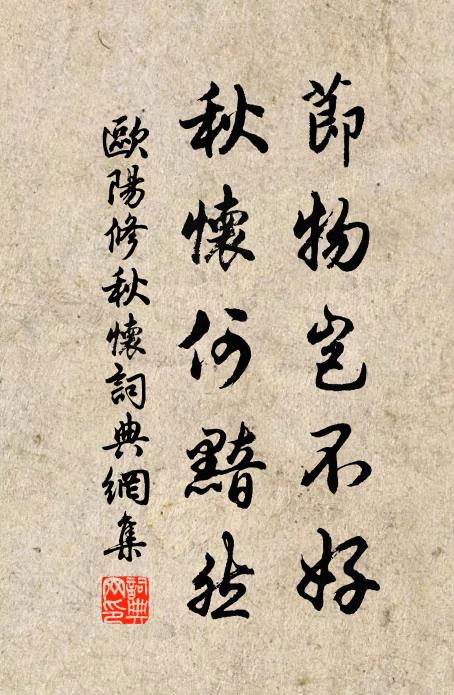 節物豈不好
秋懷何黯然
歐陽修秋懷詞典網集
詞典网印